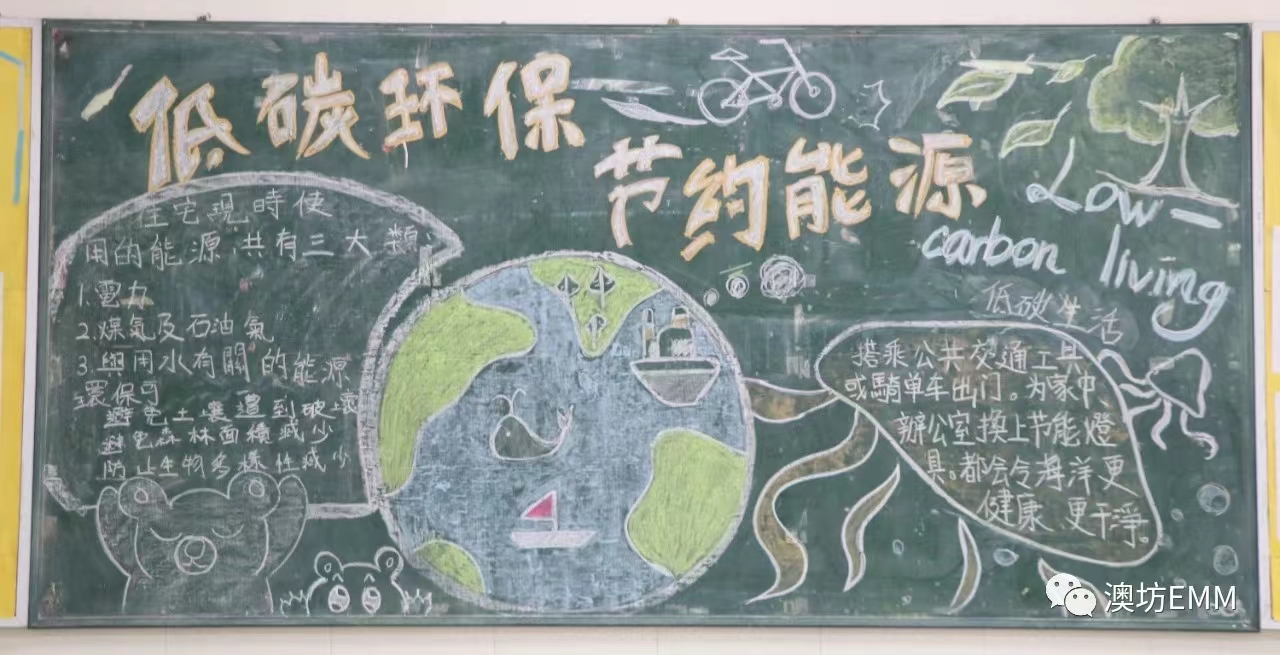 低碳环保
节约能源
Low-
carbon living
住宅現時使
用的能源,共有三大類
1.電力
2.煤氣及石油氣
3.與用水有關的能源
環保可
避免土壤遭到破壞
避免森林面積減少
防止生物多樣性減少
低碳生活
搭乘公共交通工具
或騎单车出门。为家中、
辦公室換上节能燈
具。都会令海洋更
健康、更干淨。
澳坊EMM